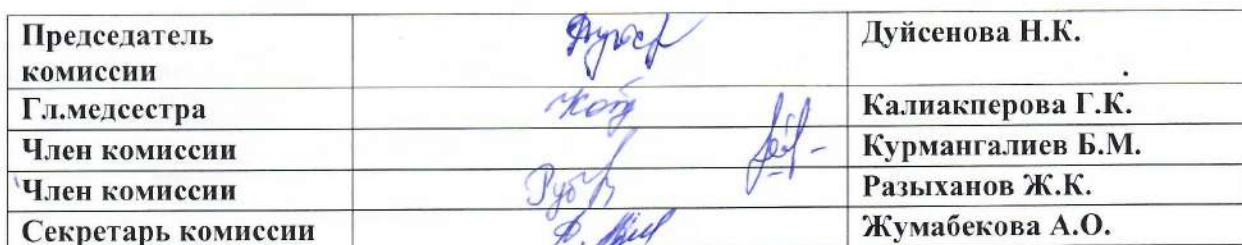 Председатель комиссии Дуйсенова Н.К.
Гл.медсестра Калиакперова Г.К.
Член комиссии Курмангалиев Б.М.
Член комиссии Разыханов Ж.К.
Секретарь комиссии Жумабекова А.О.